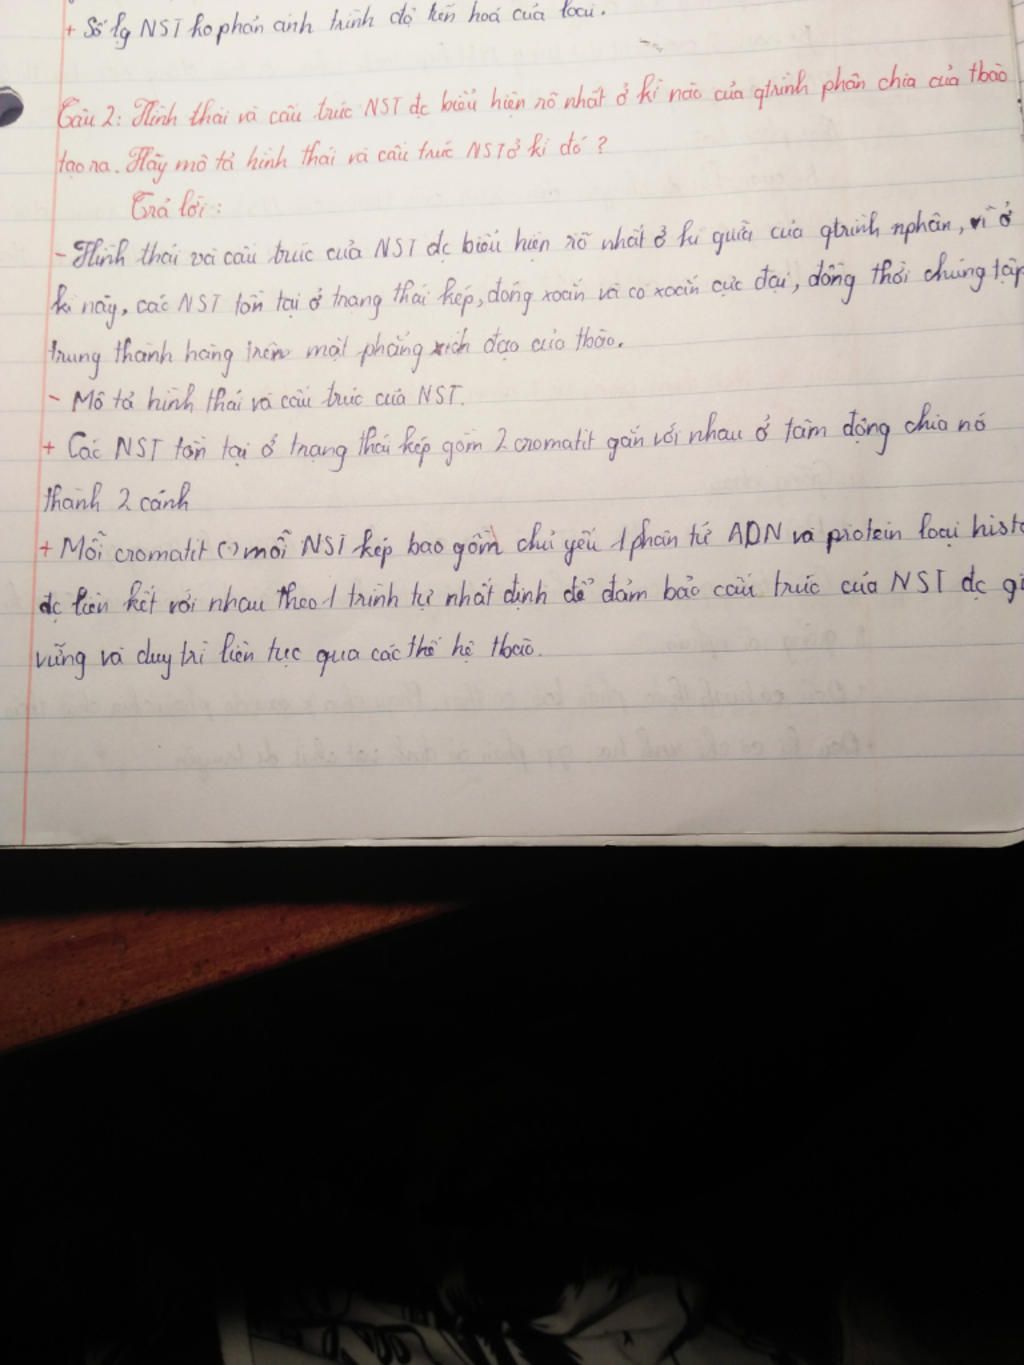 + Số lg NST ko phản ánh trình độ tiến hoá của loài.
Câu 2: Hình thái và cấu trúc NST đc biểu hiện rõ nhất ở kì nào của qtrình phân chia của tbào
tạo ra. Hãy mô tả hình thái và cấu trúc NST ở kì đó ?
Trả lời:
- Hình thái và cấu trúc của NST đc biểu hiện rõ nhất ở kì giữa của qtrình nphân, vì ở
kì này, các NST tồn tại ở trạng thái kép, đóng xoắn và co xoắn cực đại, đồng thời chúng tập
trung thành hàng trên mặt phẳng xích đạo của tbào.
- Mô tả hình thái và cấu trúc của NST.
+ Các NST tồn tại ở trạng thái kép gồm 2 cromatit gắn với nhau ở tâm động chia nó
thành 2 cánh
+ Mỗi cromatit (·) mỗi NST kép bao gồm chủ yếu 1 phân tử ADN và protein loại histo
đc liên kết với nhau theo 1 trình tự nhất định để đảm bảo cấu trúc của NST đc gi
vững và duy trì liên tục qua các thế hệ tbào.